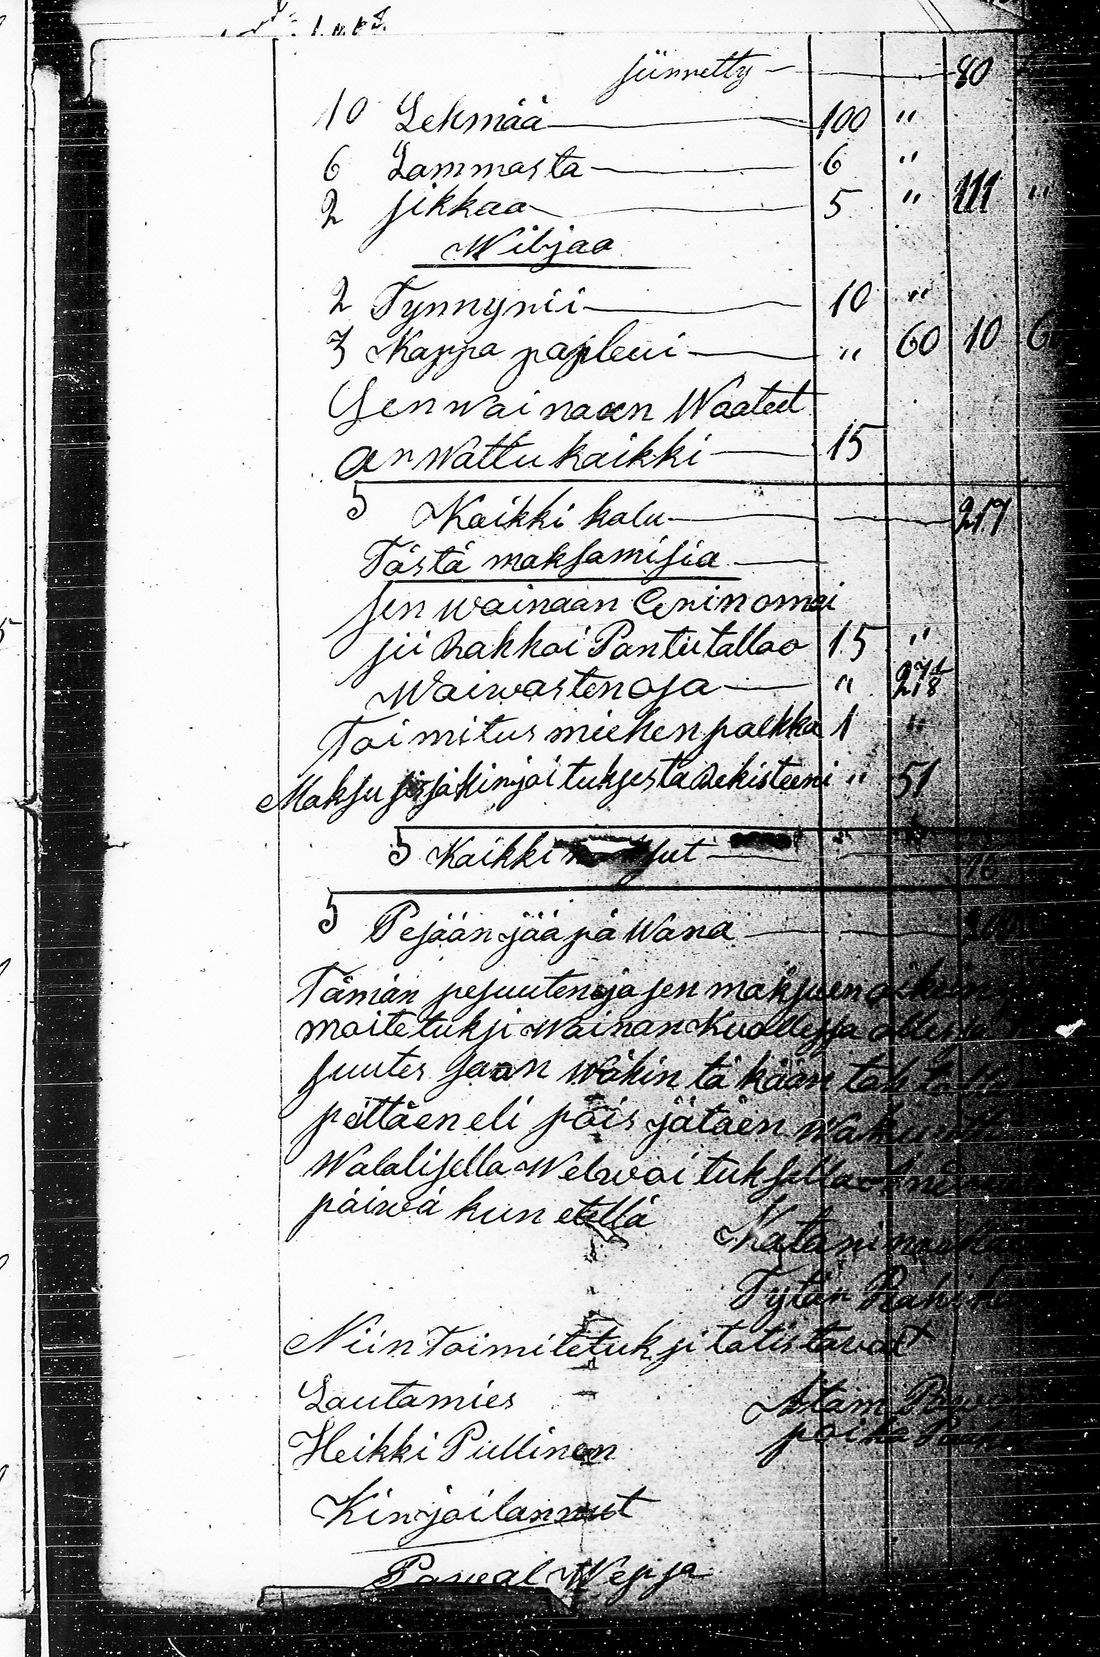 siirretty — 80
10 Lehmää — 100 "
6 Lammasta — 6 "
2 sikkaa — 5 " 111 "
Wiljaa
2 Tynnyrii — 10 "
3 Kappa papleui — " 60 10 60
Sen wainaan Waatet
arwattu kaikki — 15
5 Kaikki kalu — 217
Tästä maksamisia —
sen wainaan Erinomai
sii Rakkai Pantii tallaa 15 "
Waiwastenosa — " 27
Toimitus miehen palkka 1 "
Maksu kirjoituksesta Rekisteeni " 51
5 Kaikki — 16
5 Pesään jääpä Wara — 200
Tämän pesuuten ja sen maksuen oikein
moitetuksi Wainan Kuollessa ollessa
suutes saan wähin tä kään tah
peittäen eli pois jätäen wakuutt
Walalisella Welwoi tuksella
päiwä kun etellä
Katarina
Tytär
Niin Toimitetuksi totistawat
Lautamies Atam
Heikki Pullinen poika
Kirjoitannut
Pawal Wepsa